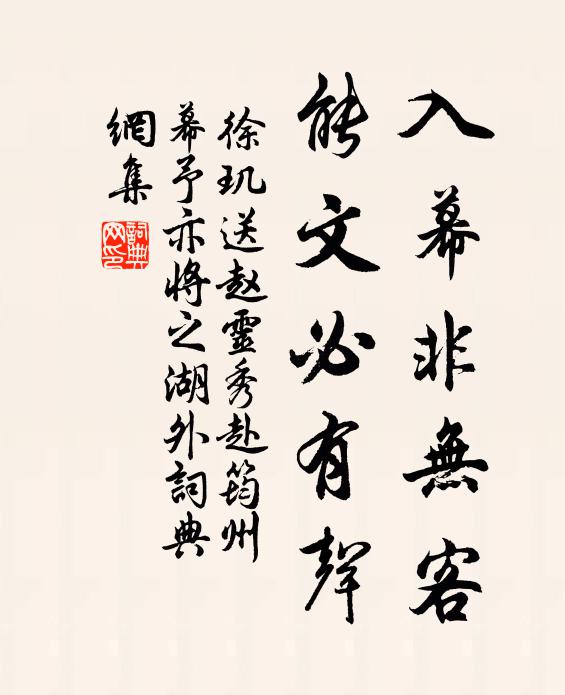 入幕非無客
能文必有聲
徐玑送赵靈秀赴筠州
幕予亦將之湖外詞典
網集
詞典
网印